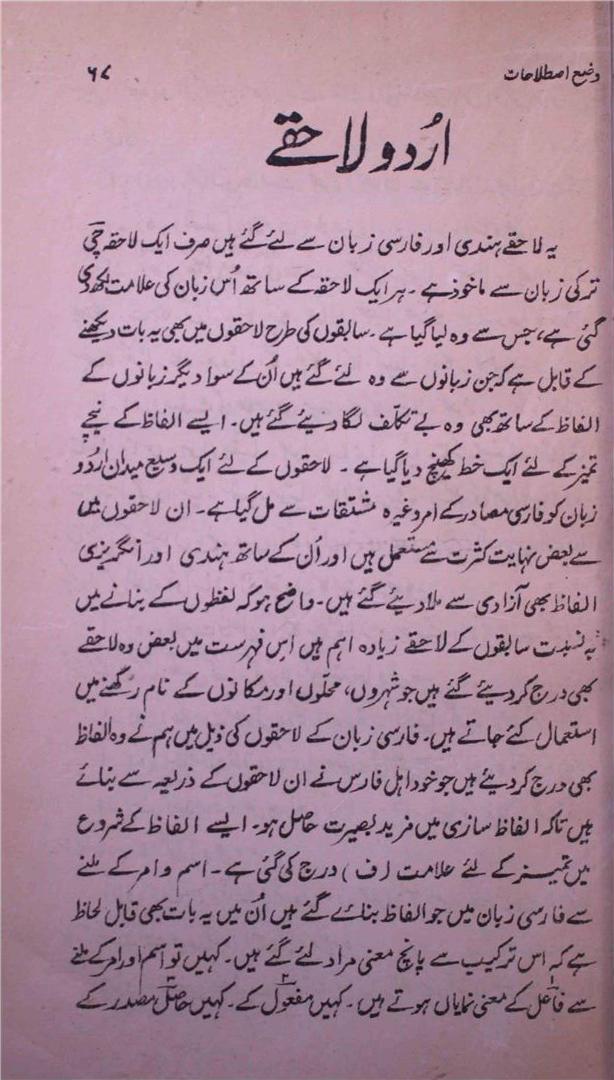 وضع اصطلاحات ۶۷
اُردو لاحقے
یہ لاحقے ہندی اور فارسی زبان سے لئے گئے ہیں صرف ایک لاحقہ چی
ترکی زبان سے ماخوذ ہے۔ ہر ایک لاحقہ کے ساتھ اُس زبان کی علامت لکھدی
گئی ہے، جس سے وہ لیا گیا ہے۔ سابقوں کی طرح لاحقوں میں بھی یہ بات دیکھنے
کے قابل ہے کہ جن زبانوں سے وہ لئے گئے ہیں اُن کے سوا دیگر زبانوں کے
الفاظ کے ساتھ بھی وہ بے تکلّف لگا دیئے گئے ہیں۔ ایسے الفاظ کے نیچے
تمیز کے لئے ایک خط کھینچ دیا گیا ہے۔ لاحقوں کے لئے ایک وسیع میدان اُردو
زبان کو فارسی مصادر کے امر وغیرہ مشتقات سے مل گیا ہے۔ ان لاحقوں میں
سے بعض نہایت کثرت سے مستعمل ہیں اور اُن کے ساتھ ہندی اور انگریزی
الفاظ بھی آزادی سے ملا دیئے گئے ہیں۔ واضح ہو کہ لفظوں کے بنانے میں
بہ نسبت سابقوں کے لاحقے زیادہ اہم ہیں اس فہرست میں بعض وہ لاحقے
بھی درج کر دیئے گئے ہیں جو شہروں، محلّوں اور مکانوں کے نام رکھنے میں
استعمال کئے جاتے ہیں۔ فارسی زبان کے لاحقوں کی ذیل میں ہم نے وہ الفاظ
بھی درج کر دیئے ہیں جو خود اہل فارس نے ان لاحقوں کے ذریعہ سے بنائے
ہیں تاکہ الفاظ سازی میں مزید بصیرت حاصل ہو۔ ایسے الفاظ کے شروع
میں تمیز کے لئے علامت (ف) درج کی گئی ہے۔ اسم و امر کے ملنے
سے فارسی زبان میں جو الفاظ بنائے گئے ہیں اُن میں یہ بات بھی قابل لحاظ
ہے کہ اس ترکیب سے پانچ معنی مراد لئے گئے ہیں۔ کہیں تو اسم اور امر کے ملنے
سے فاعل کے معنی نمایاں ہوتے ہیں۔ کہیں مفعول کے۔ کہیں حاصل مصدر کے